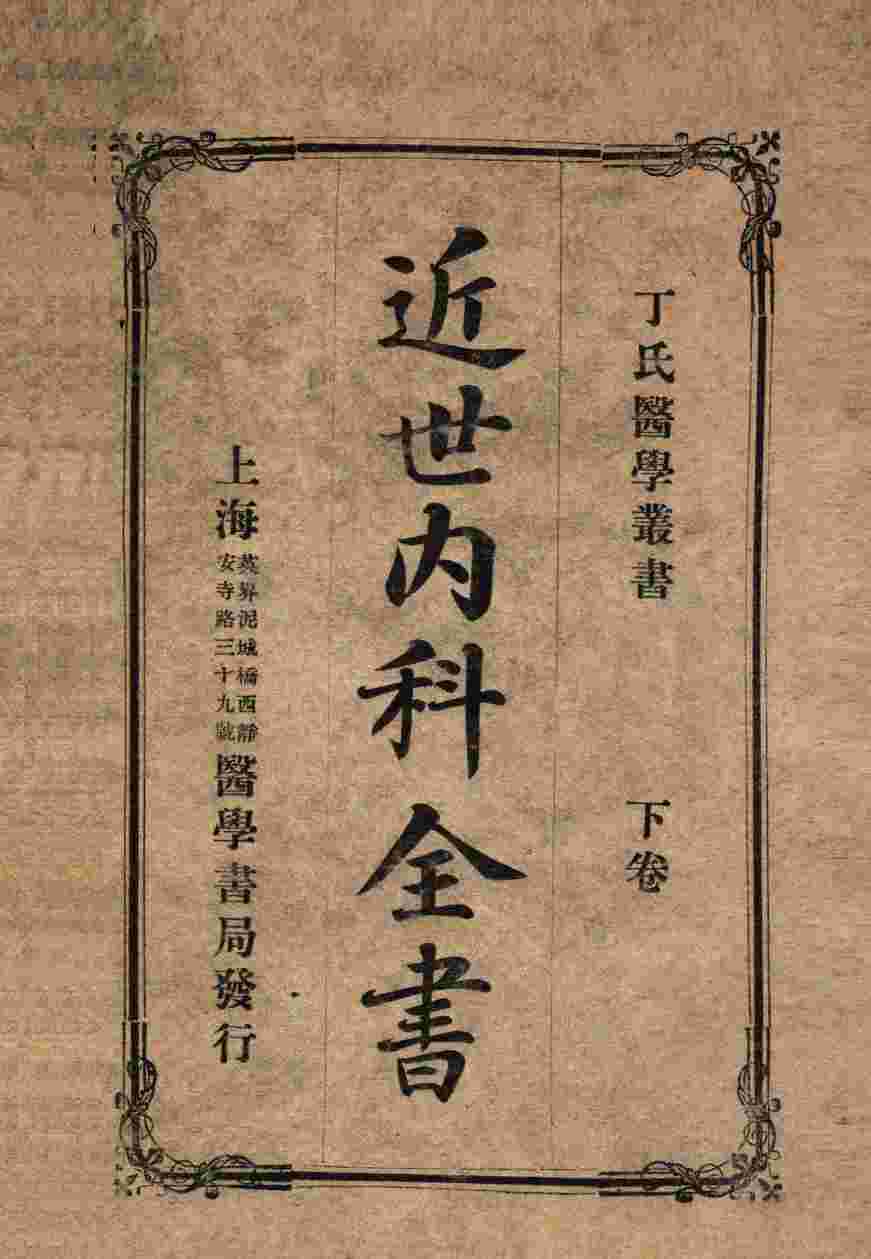 丁氏醫學叢書 下卷
近世内科全書
上海 英界泥城橋西靜安寺路三十九號 醫學書局發行